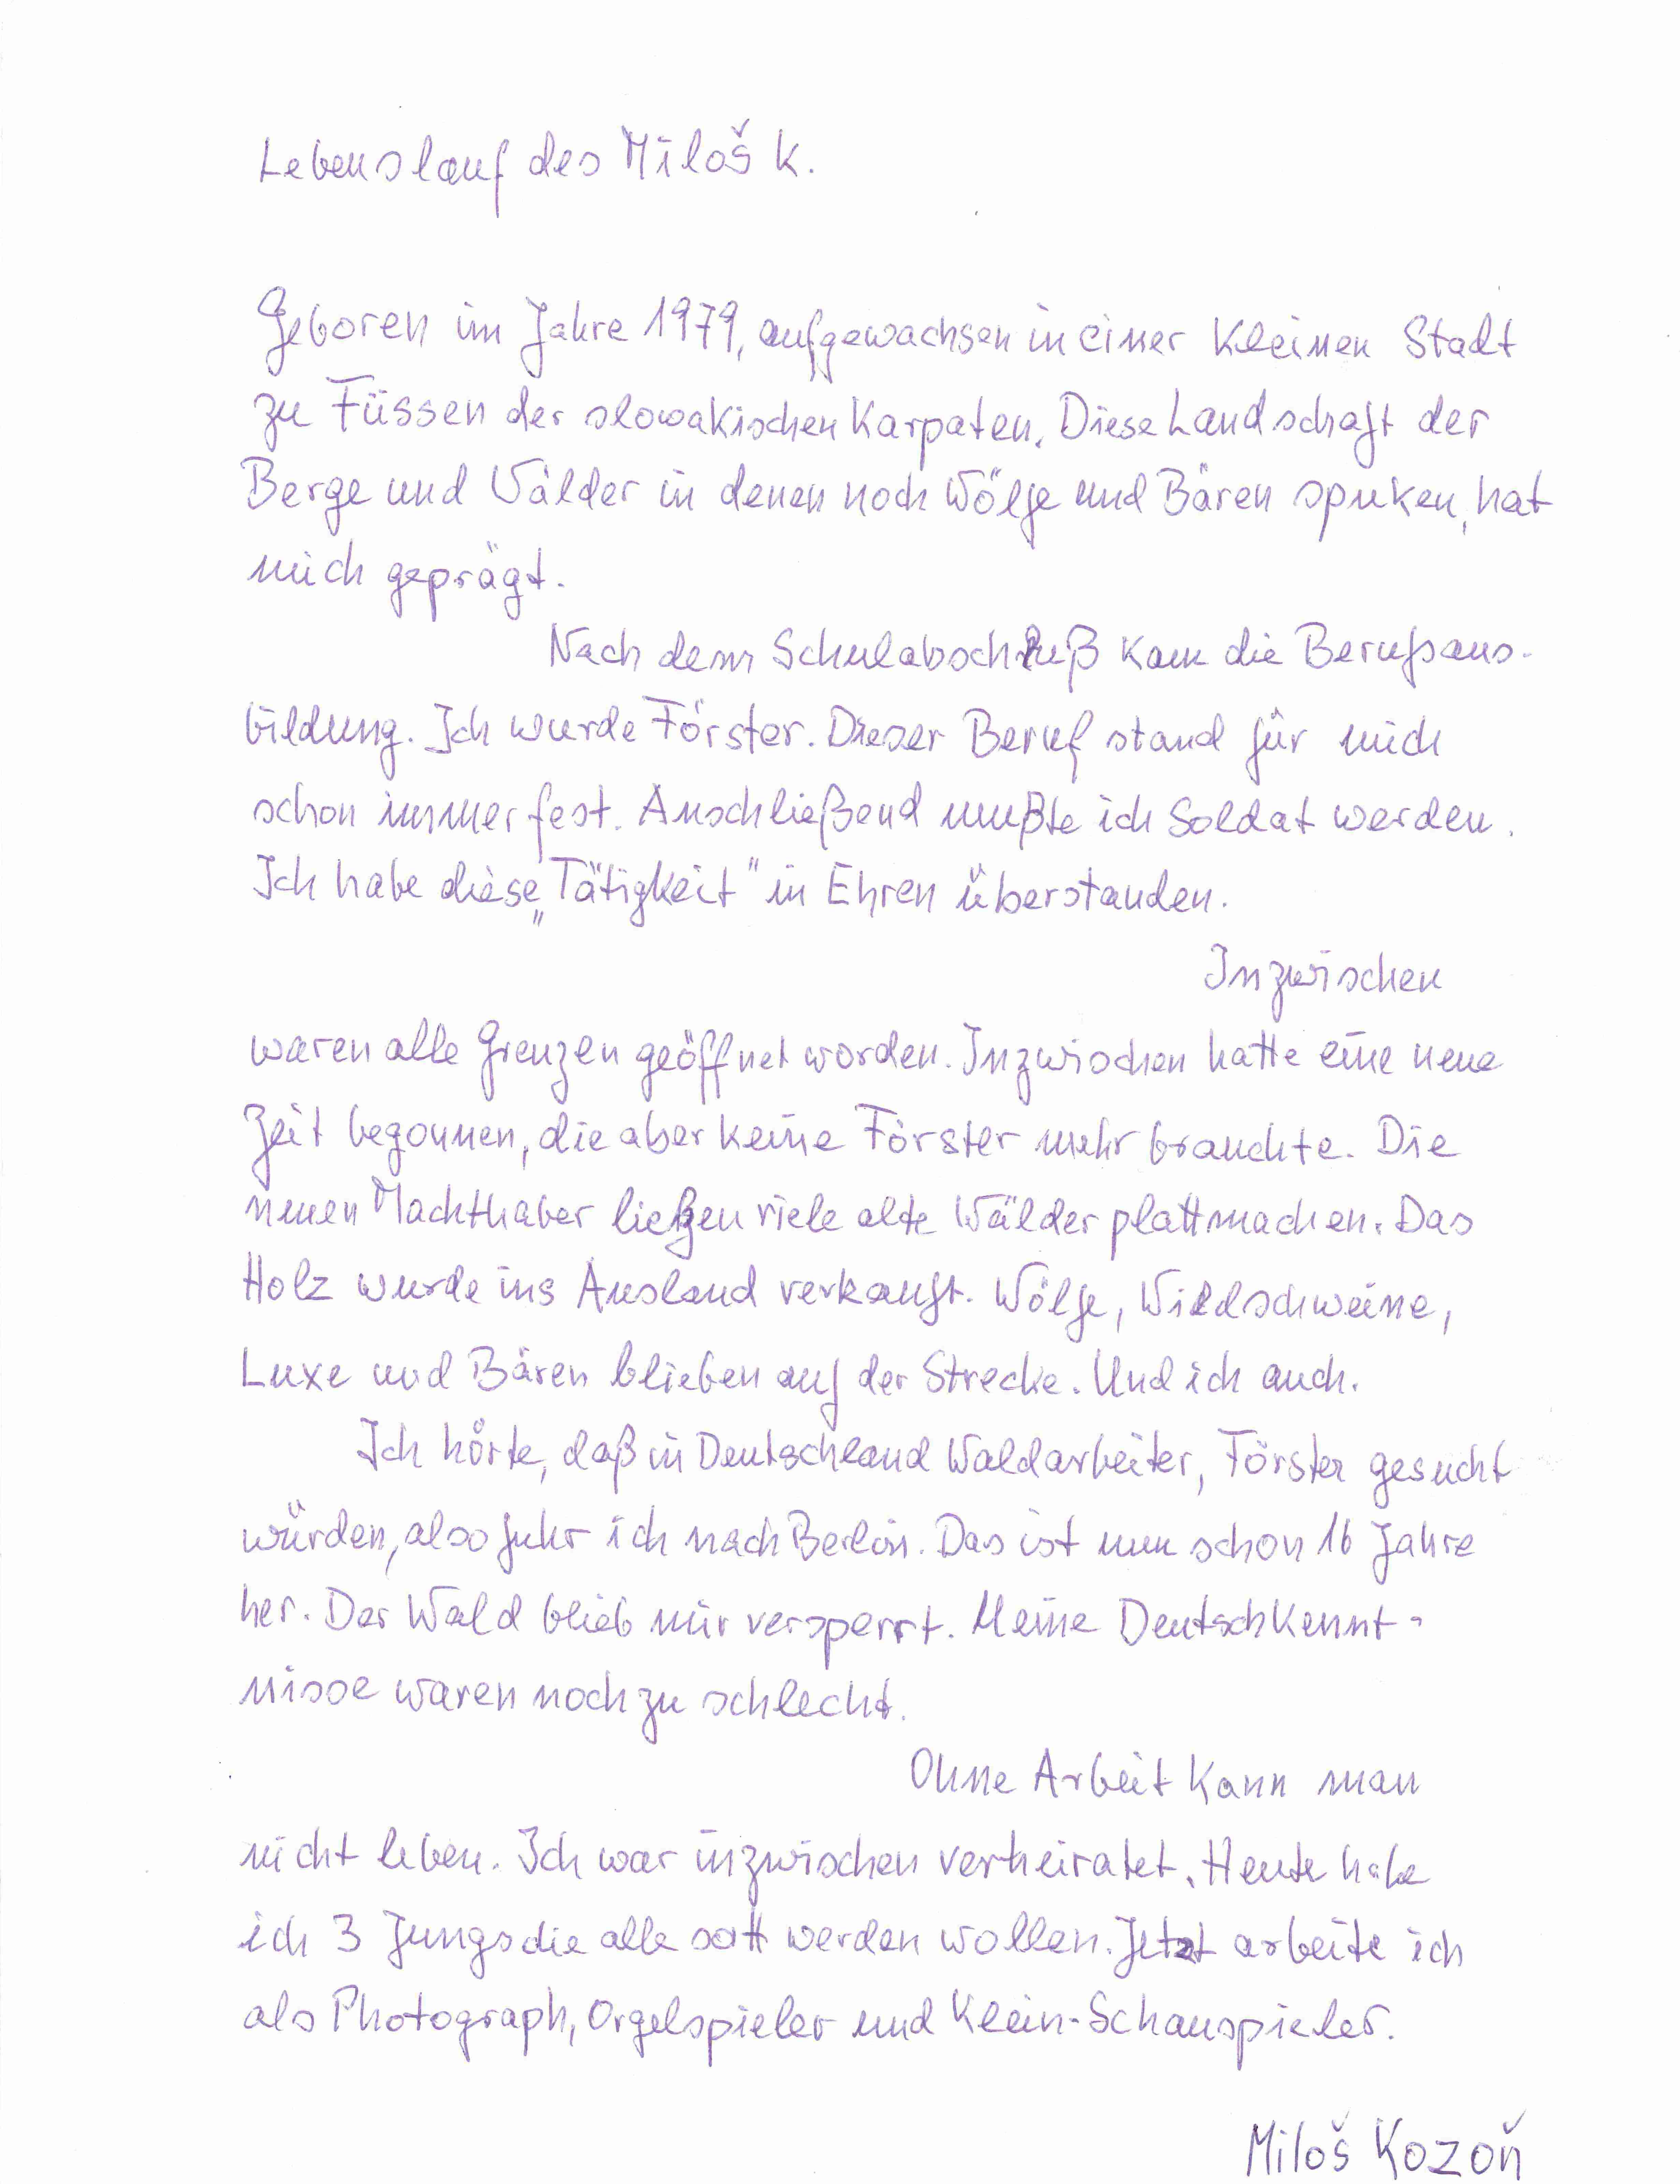 Lebenslauf des Miloš K.
Geboren im Jahre 1979, aufgewachsen in einer kleinen Stadt
zu Füssen der slowakischen Karpaten. Diese Landschaft der
Berge und Wälder in denen noch Wölfe und Bären spuken, hat
mich geprägt.
Nach dem Schulabschluß kam die Berufsaus-
bildung. Ich wurde Förster. Dieser Beruf stand für mich
schon immer fest. Anschließend mußte ich Soldat werden.
Ich habe diese „Tätigkeit" in Ehren überstanden.
Inzwischen
waren alle Grenzen geöffnet worden. Inzwischen hatte eine neue
Zeit begonnen, die aber keine Förster mehr brauchte. Die
neuen Machthaber ließen viele alte Wälder plattmachen. Das
Holz wurde ins Ausland verkauft. Wölfe, Wildschweine,
Luxe und Bären blieben auf der Strecke. Und ich auch.
Ich hörte, daß in Deutschland Waldarbeiter, Förster gesucht
würden, also fuhr ich nach Berlin. Das ist nun schon 16 Jahre
her. Der Wald blieb mir versperrt. Meine Deutschkennt-
nisse waren noch zu schlecht.
Ohne Arbeit kann man
nicht leben. Ich war inzwischen verheiratet. Heute habe
ich 3 Jungs die alle satt werden wollen. Jetzt arbeite ich
als Photograph, Orgelspieler und Klein-Schauspieler.
Miloš Kozoň